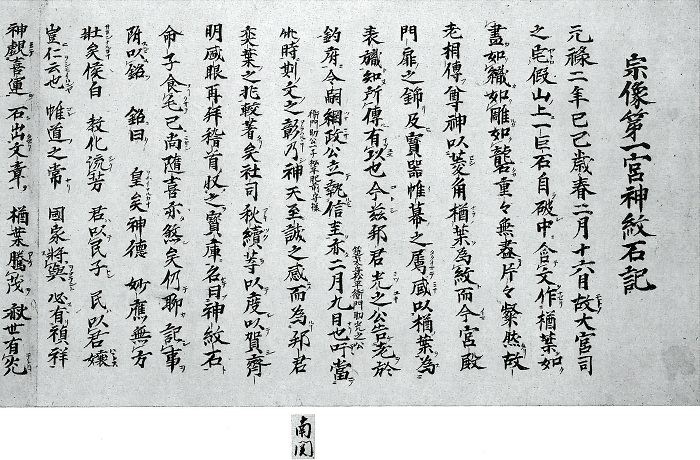 宗像第一宮神紋石記
元禄二年己巳歳春二月十六日故大宮司
之宅假山上一巨石自破中含文作楢葉如
畫如織如雕如礱重々無盡片々粲然故
老相傳尊神以菱角楢葉為紋而今宮殿
門扉之飾及寶器帷幕之属咸以楢葉為
表識知所傳有以也今茲邦君光之公告老於
鈞府令嗣綱政公立執信圭亦二月九日也吁當
此時則文之彰乃神天至誠之感而為邦君
奕葉之兆較著矣社司秋續等以度以賀齊
明感眼再拜稽首収之寶庫名曰神紋石
命子食宅已尚隨喜亦煞矣仍聊記事
附以銘 銘曰 皇矣神德 妙應無方
壯矣侯自 教化流芳 君以民子 民以君孃
豈仁云也 惟道之常 國家將興 必有禎祥
神觀喜運 石出文章 楢葉騰茂 秋世有光
南関